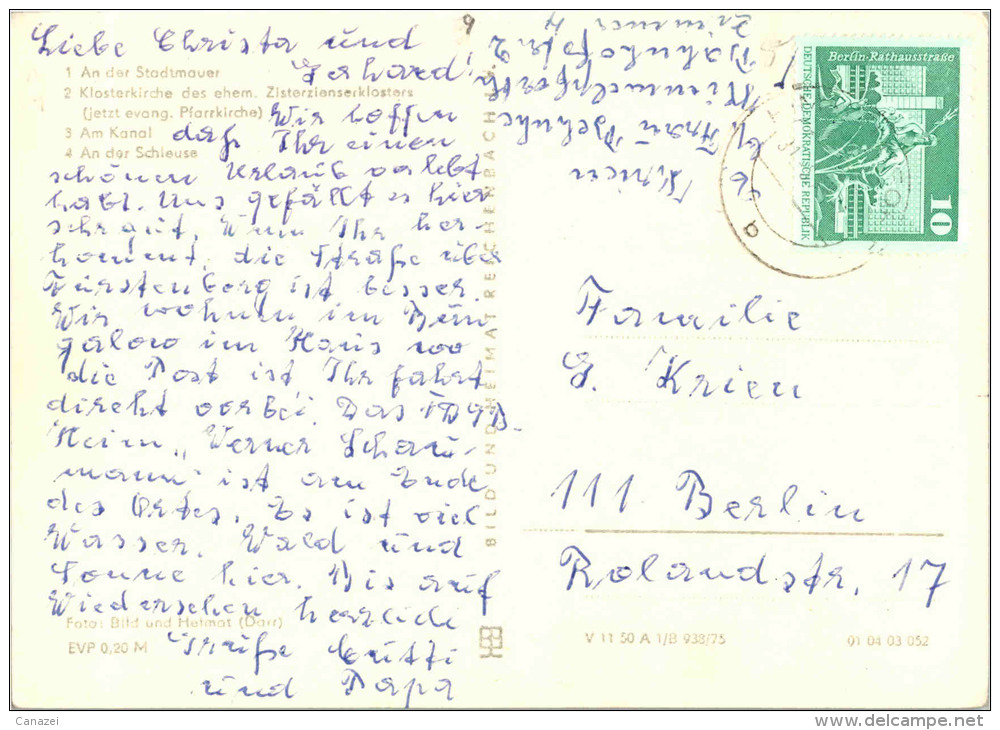 Liebe Christa und
Gerhard!
Wir hoffen
daß Ihr einen
schönen Urlaub verlebt
habt. Uns gefällt es hier
sehr gut. Wenn Ihr her-
kommt, die Straße über
Fürstenberg ist besser.
Wir wohnen im Bun
galow im Haus wo
die Post ist Ihr fahrt
direkt vorbei. Das FDGB-
Heim „Werner Schau-
mann" ist am Ende
des Ortes. Es ist viel
Wasser, Wald und
Sonne hier. Bis auf
Wiedersehen herzlich
Grüße Mutti
und Papa
1 An der Stadtmauer
2 Klosterkirche des ehem. Zisterzienserklosters
(jetzt evang. Pfarrkirche)
3 Am Kanal
4 An der Schleuse
Foto: Bild und Heimat (Darr)
EVP 0,20 M
BILD UND HEIMAT REICHENBACH
Krien
b. Frau
Himmelpfort
Bahnhofstr. 2
Zimmer 4
Berlin-Rathausstraße
DEUTSCHE DEMOKRATISCHE REPUBLIK
10
Familie
G. Krien
111 Berlin
Rolandstr. 17
V 11 50 A 1/B 938/75
01 04 03 052
Canazei
www.delcampe.net